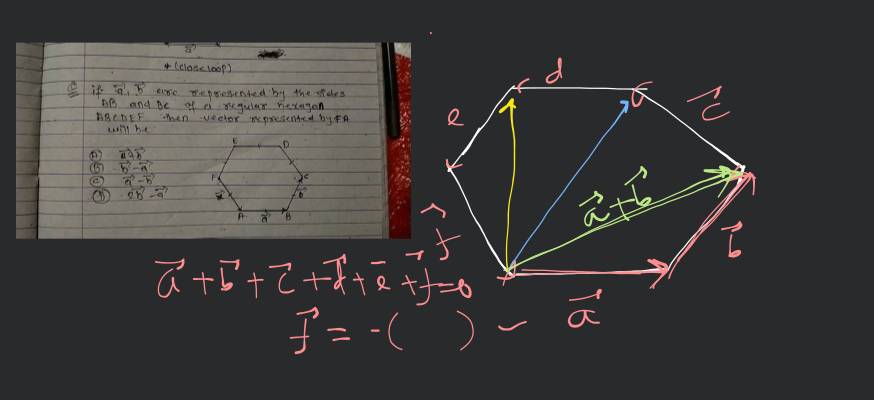 * (close loop)
Q if a⃗, b⃗ are represented by the sides
AB and BC of a regular hexagon
ABCDEF then vector represented by FA
will be
(A) a⃗+b⃗
(B) b⃗-a⃗
(C) a⃗-b⃗
(D) 2b⃗-a⃗
E D
F C
b⃗
A a⃗ B
d
e c⃗
a⃗+b⃗
f⃗ b⃗
a⃗+b⃗+c⃗+d⃗+e⃗+f⃗=0
a⃗
f⃗ = -( ) -